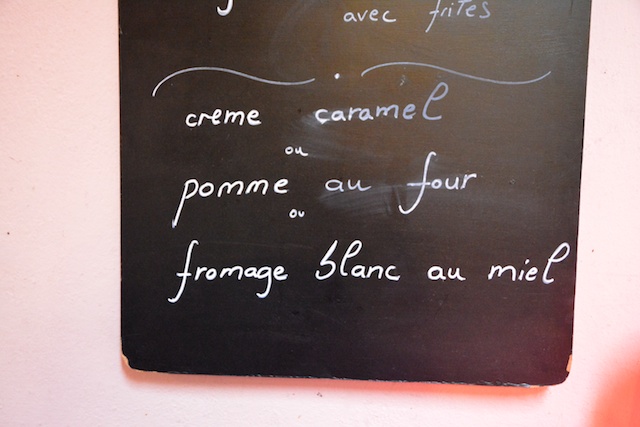 avec frites
creme caramel
ou
pomme au four
ou
fromage blanc au miel